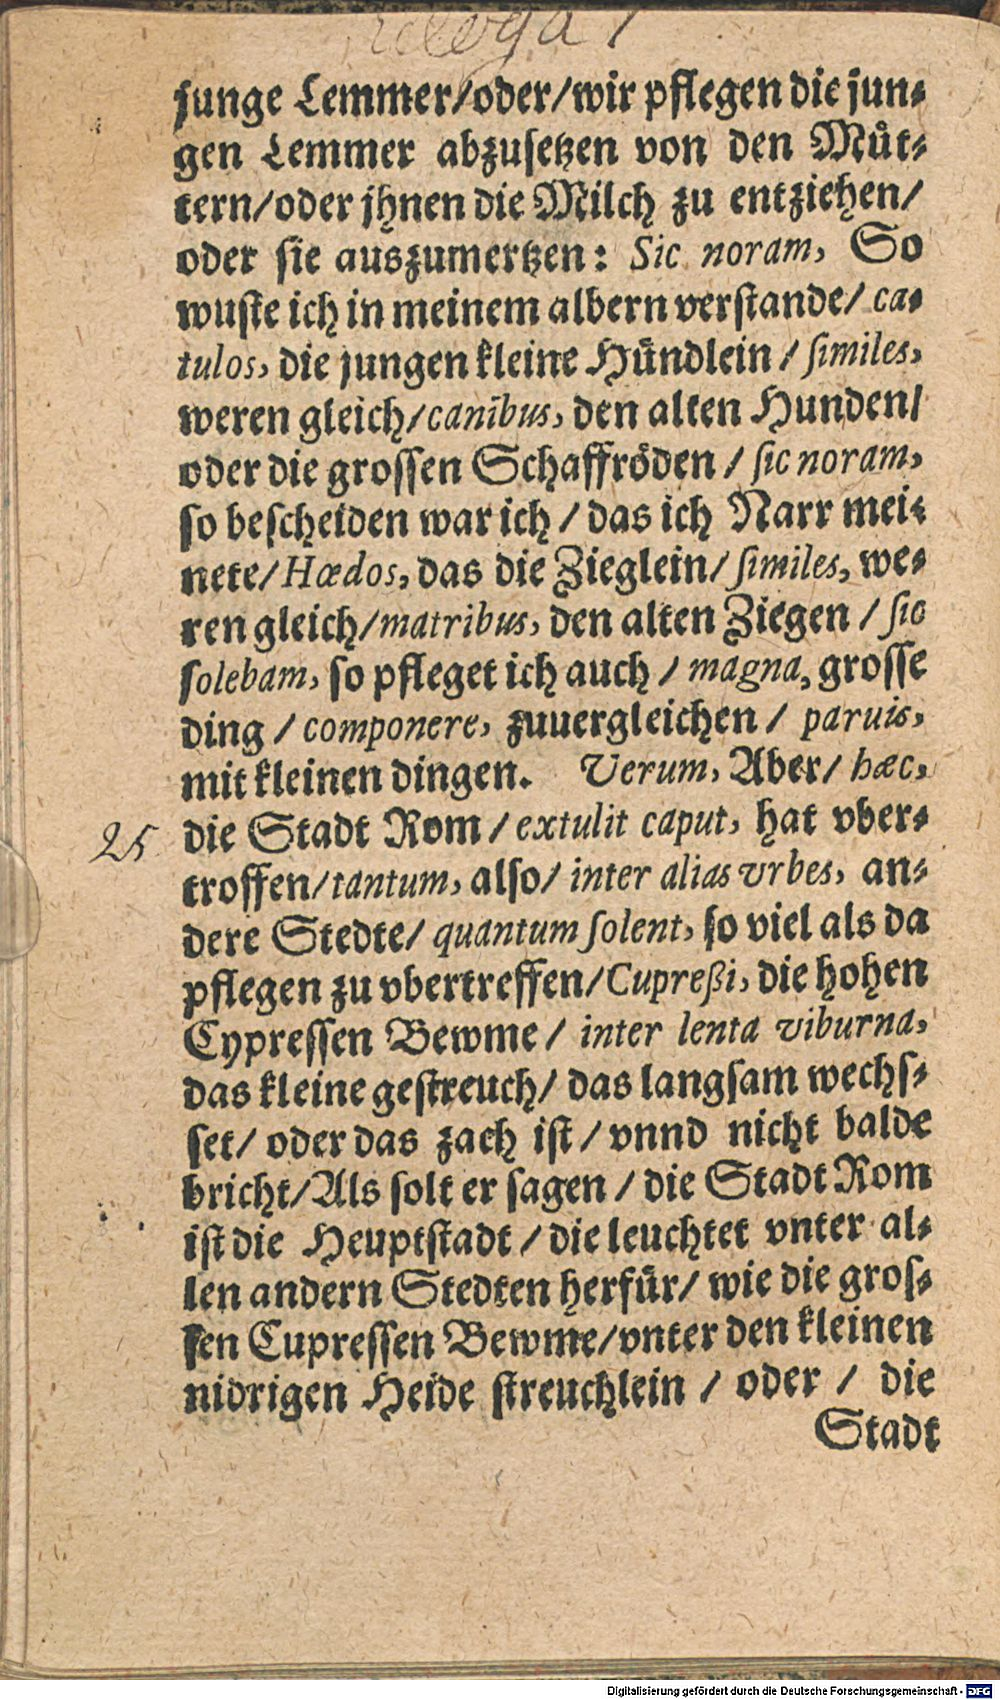 Ecloga 1
junge Lemmer/oder/wir pflegen die jun-
gen Lemmer abzusetzen von den Muͤt-
tern/oder jhnen die Milch zu entziehen/
oder sie auszumertzen: Sic noram, So
wuste ich in meinem albern verstande/ ca-
tulos, die jungen kleine Huͤndlein / ſimiles,
weren gleich/canibus, den alten Hunden/
oder die grossen Schaffroͤden / ſic noram,
so bescheiden war ich / das ich Narr mei-
nete/Hædos, das die Zieglein/ ſimiles, we-
ren gleich/matribus, den alten Ziegen / ſic
solebam, so pfleget ich auch / magna, grosse
ding / componere, zuuergleichen / paruis,
mit kleinen dingen. Verum, Aber/ hæc,
25
die Stadt Rom / extulit caput, hat vber-
troffen/tantum, also/ inter alias vrbes, an-
dere Stedte/ quantum ſolent, so viel als da
pflegen zu vbertreffen/Cupreßi, die hohen
Cypressen Bewme / inter lenta viburna,
das kleine gestreuch/ das langsam wechs-
set/ oder das zaeh ist / vnnd nicht balde
bricht/Als solt er sagen / die Stadt Rom
ist die Heuptstadt / die leuchtet vnter al-
len andern Stedten herfuͤr/ wie die gros-
sen Cupressen Bewme/vnter den kleinen
nidrigen Heide streuchlein / oder / die
Stadt
Digitalisierung gefördert durch die Deutsche Forschungsgemeinschaft - DFG